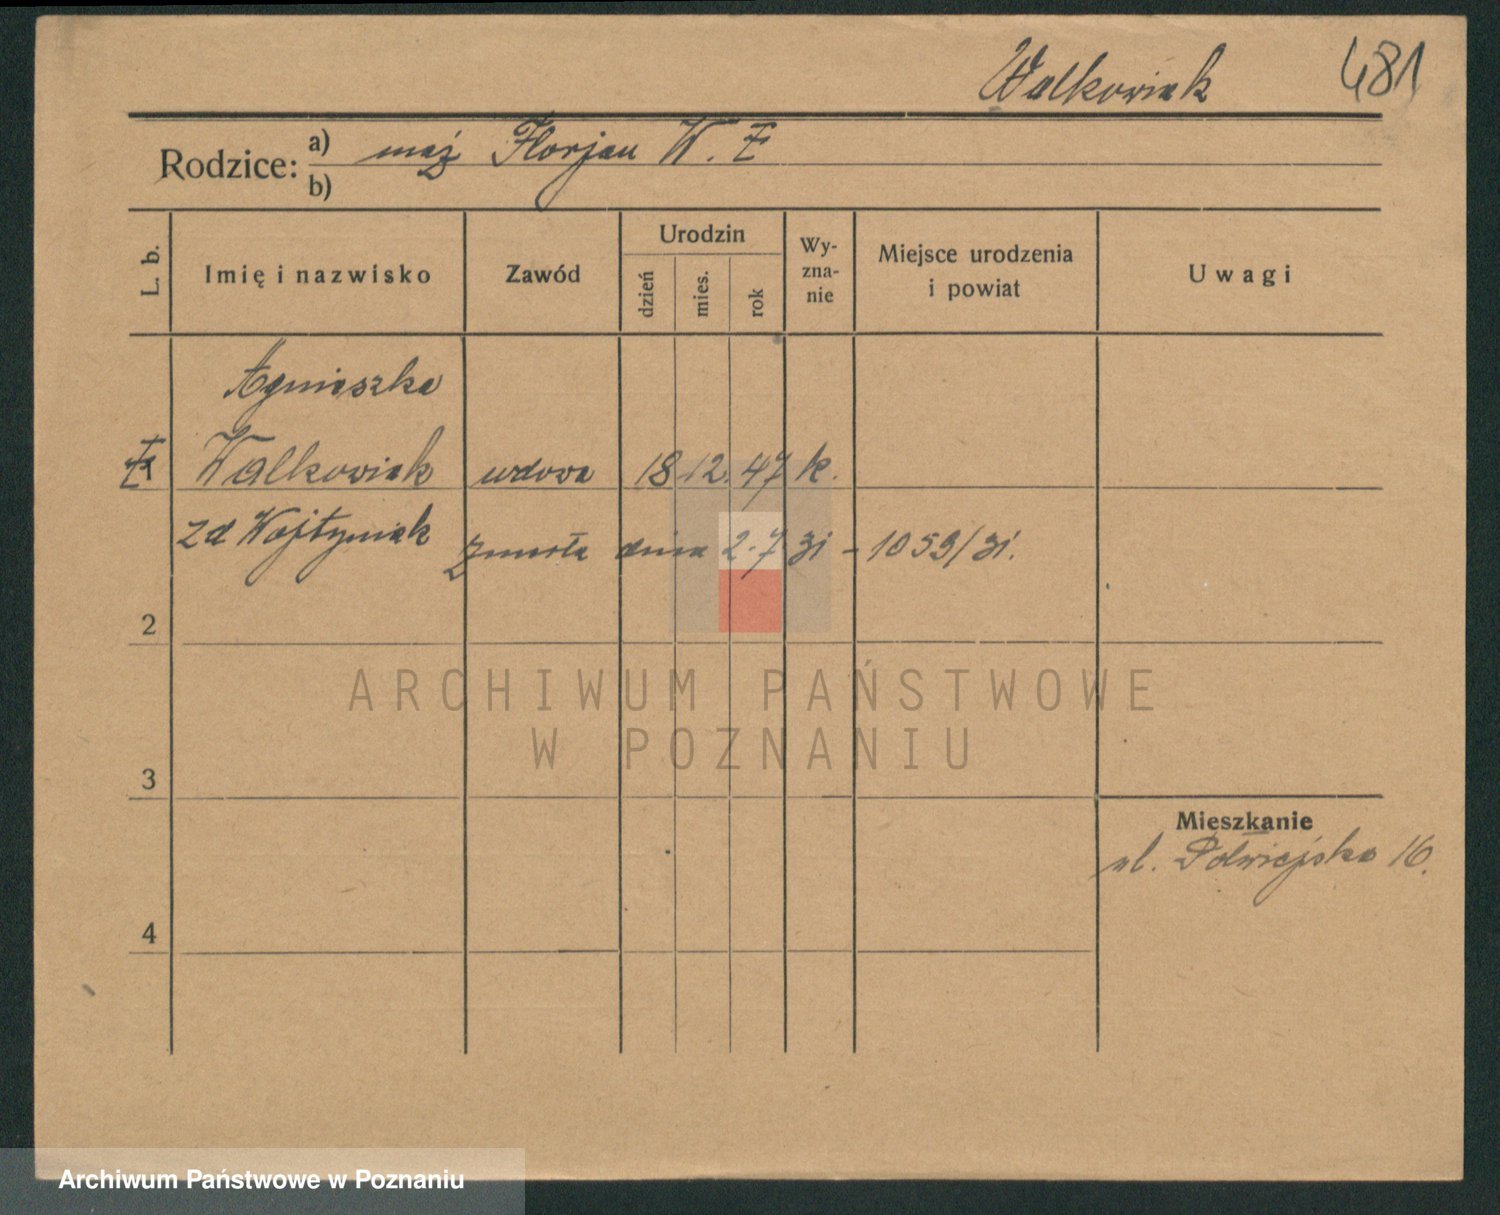 Walkowiak 481
Rodzice: a) mąż Florjan W. E
b)
L. b.
Imię i nazwisko
Zawód
Urodzin
dzień
mies.
rok
Wy-
zna-
nie
Miejsce urodzenia
i powiat
Uwagi
Agnieszka
Walkowiak wdowa 18 12. 47 k.
zd Wojtyniak zmarła dnia 2.7 31 - 1059/31.
2
3
4
Mieszkanie
ul. Półwiejska 16.
ARCHIWUM PAŃSTWOWE
W POZNANIU
Archiwum Państwowe w Poznaniu